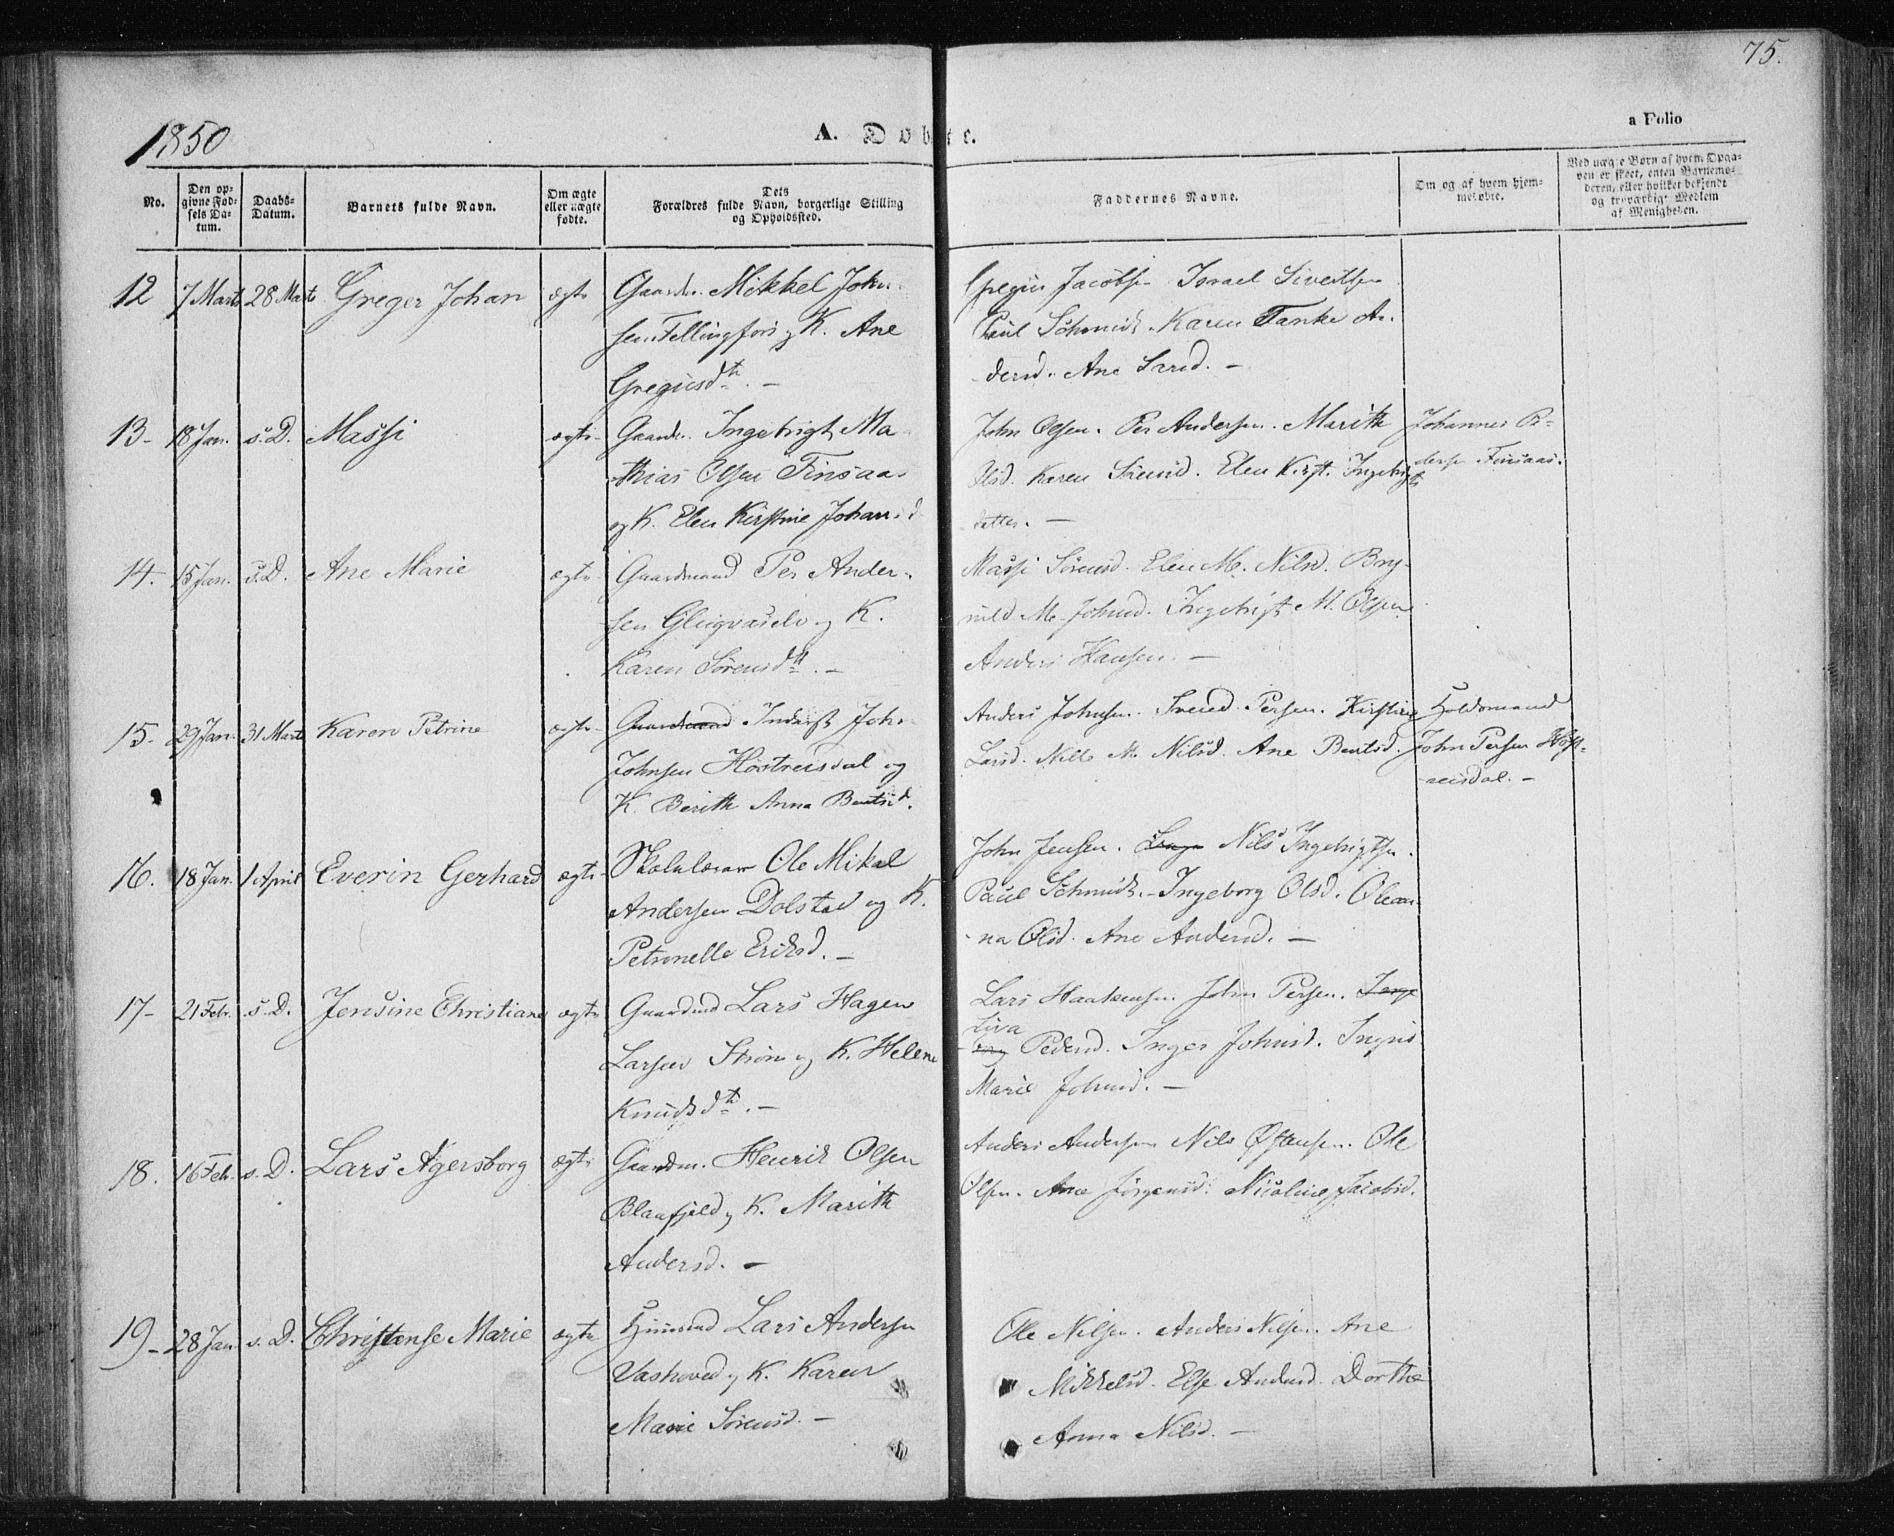 75.
1850
A. Døbte.
a Folio
No.
Den op-
givne Fød-
sels Da-
tum.
Daabs-
Datum.
Barnets fulde Navn.
Om ægte
eller uægte
fødte.
Dets
Forældres fulde Navn, borgerlige Stilling
og Opholdssted.
Faddernes Navne.
Om og af hvem hjem-
medøbte.
Ved uægte Børn af hvem Opga-
ven er skeet, enten Barnemo-
deren, eller hvilket bekjendt
og troværdigt Medlem
af Menigheden.
12 7 Marts 28 Marts Greger Johan ægte Gaardm. Mikkel John-
sen Fellingfors og K. Ane
Gregusdtr. –
Gregus Jacobsen Israel Sivertsen
Paul Schmidt. Karen Tanke An-
dersd. Ane Larsd. –
13- 18 Jan. s. D. Massi ægte Gaardm. Ingebrigt Ma-
thias Olsen Finsaas
og K. Elen Kirstine Johansd
John Olsen. Per Andersen. Marith
Olsd. Karen Sörensd. Elen Kirst. Ingebrigts
datter. –
Johannes Pe-
dersen Finsaas.
14. 15 Jan. s. D. Ane Marie ægte Gaardmand Per Ander-
sen og K.
Karen Sörensdtr. –
Massi Sörensd. Elen M. Nilsd. Bry-
nild M. Johnsd. Ingebrigt M. Olsen
Anders Hansen. –
15- 29 Jan. 31 Marts Karen Petrine ægte Gaardmand Inderst John
Johnsen Höstreisdal og
K. Berith Anna Bentsd.
Anders Johnsen. Svend Persen. Kirstine
Larsd. Nille M. Nilsd. Ane Bentsd.
Holdsmand
John Persen Höst-
reisdal. –
16. 18 Jan. 1 April Everin Gerhard ægte Skolelærer Ole Mikal
Andersen Dolstad og K.
Petronelle Eriksd. –
John Jensen. Nils Ingebrigtsen.
Paul Schmidt. – Ingeborg Olsd. Olean-
na Olsd. Ane Andersd. –
17- 21 Febr. s. D. Jensine Christiane ægte Gaardmd Lars Hagen
Larsen Ström og K. Helene
Knudsdtr. –
Lars Haakensen. John Persen. Inge
Siva
Pedersd. Inger Johnsd. Ingrid
Marie Johnsd. –
18. 16 Feb. s. D. Lars Agersborg ægte Gaardm. Henrik Olsen
Blaafjeld og K. Marith
Andersd. –
Anders Andersen Nils Östensen. Ole
Olsen. Ane Jörgensd. Nicoline Jacobsd.
19- 28 Jan s. D. Christense Marie ægte Huusmd Lars Andersen
Vashoved og K. Karen
Marie Sörensd. –
Ole Nilsen. Anders Nilsen. Ane
Mikkelsd. Else Andersd. Dorthe
Anna Nilsd. –